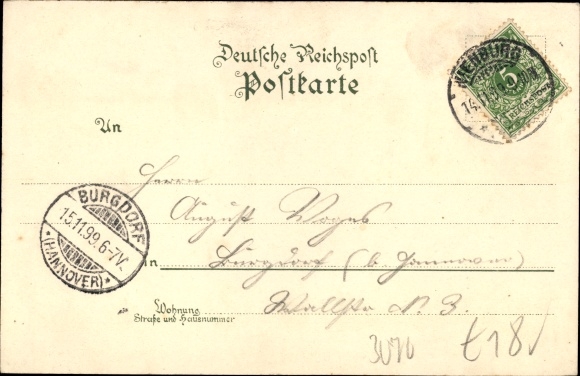 Deutsche Reichspost
Postkarte
NIENBURG
14.11.99
5
REICHSPOST
An
Herrn
August Voges
BURGDORF
15.11.99. 6-7V.
*(HANNOVER)*
in Burgdorf (b. Hannover)
Wohnung
Straße und Hausnummer
Wallstr N. 3.
3070
€18